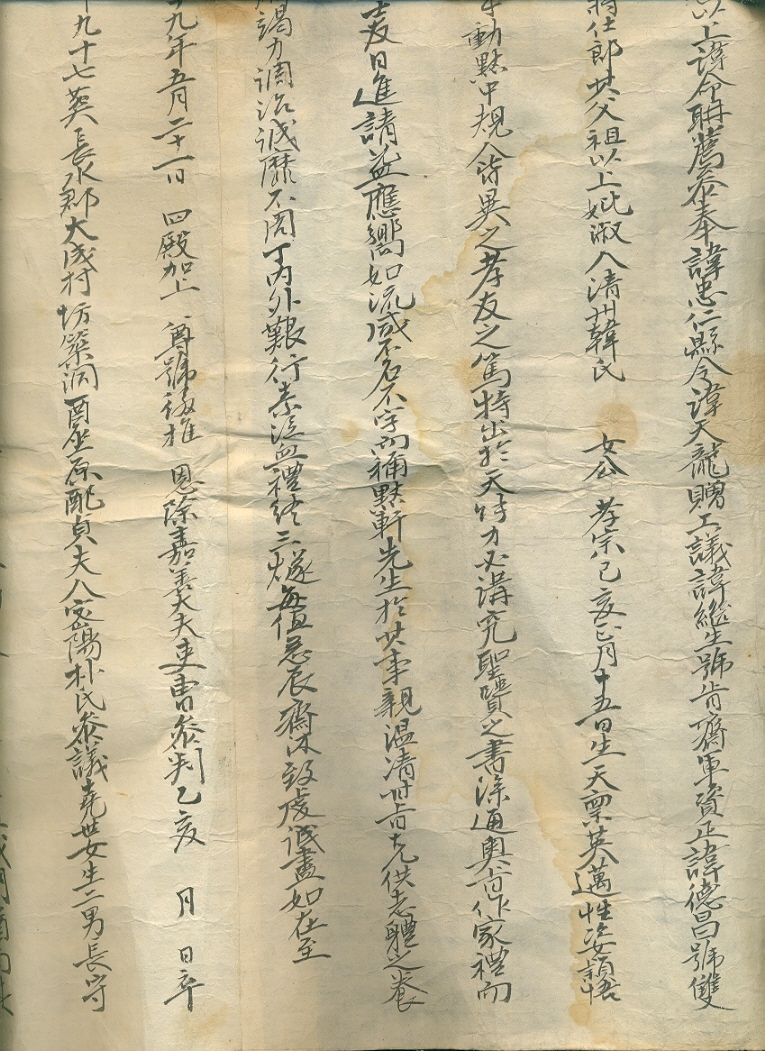 以上諱命聃薦參奉 諱忠仁縣令諱天龍贈工議諱繼生號肯齋軍資正諱德昌號雙
將仕郎其父祖以上妣淑人清州韓氏 女公 孝宗己亥正月十五日生天稟英邁性姿穎悟
動黙中規人皆異之孝友之篤特出於天特力必講究聖賢之書深通奧旨作家禮而
日進請益應嚮如流咸不名不字而稱黙軒先生於其事親温清甘旨克供志體之養
竭力調治誠靡不周丁內外艱行素泣血禮終三燧每值忌辰齋沐致虔誠盡如在至
九年五月二十一日 四殿加上 尊號禄推 恩除嘉善大夫吏曹參判乙亥 月 日卒
九十七葬長水郡大成村坊築洞酉坐原配貞夫人密陽朴氏參議堯世女生二男長守